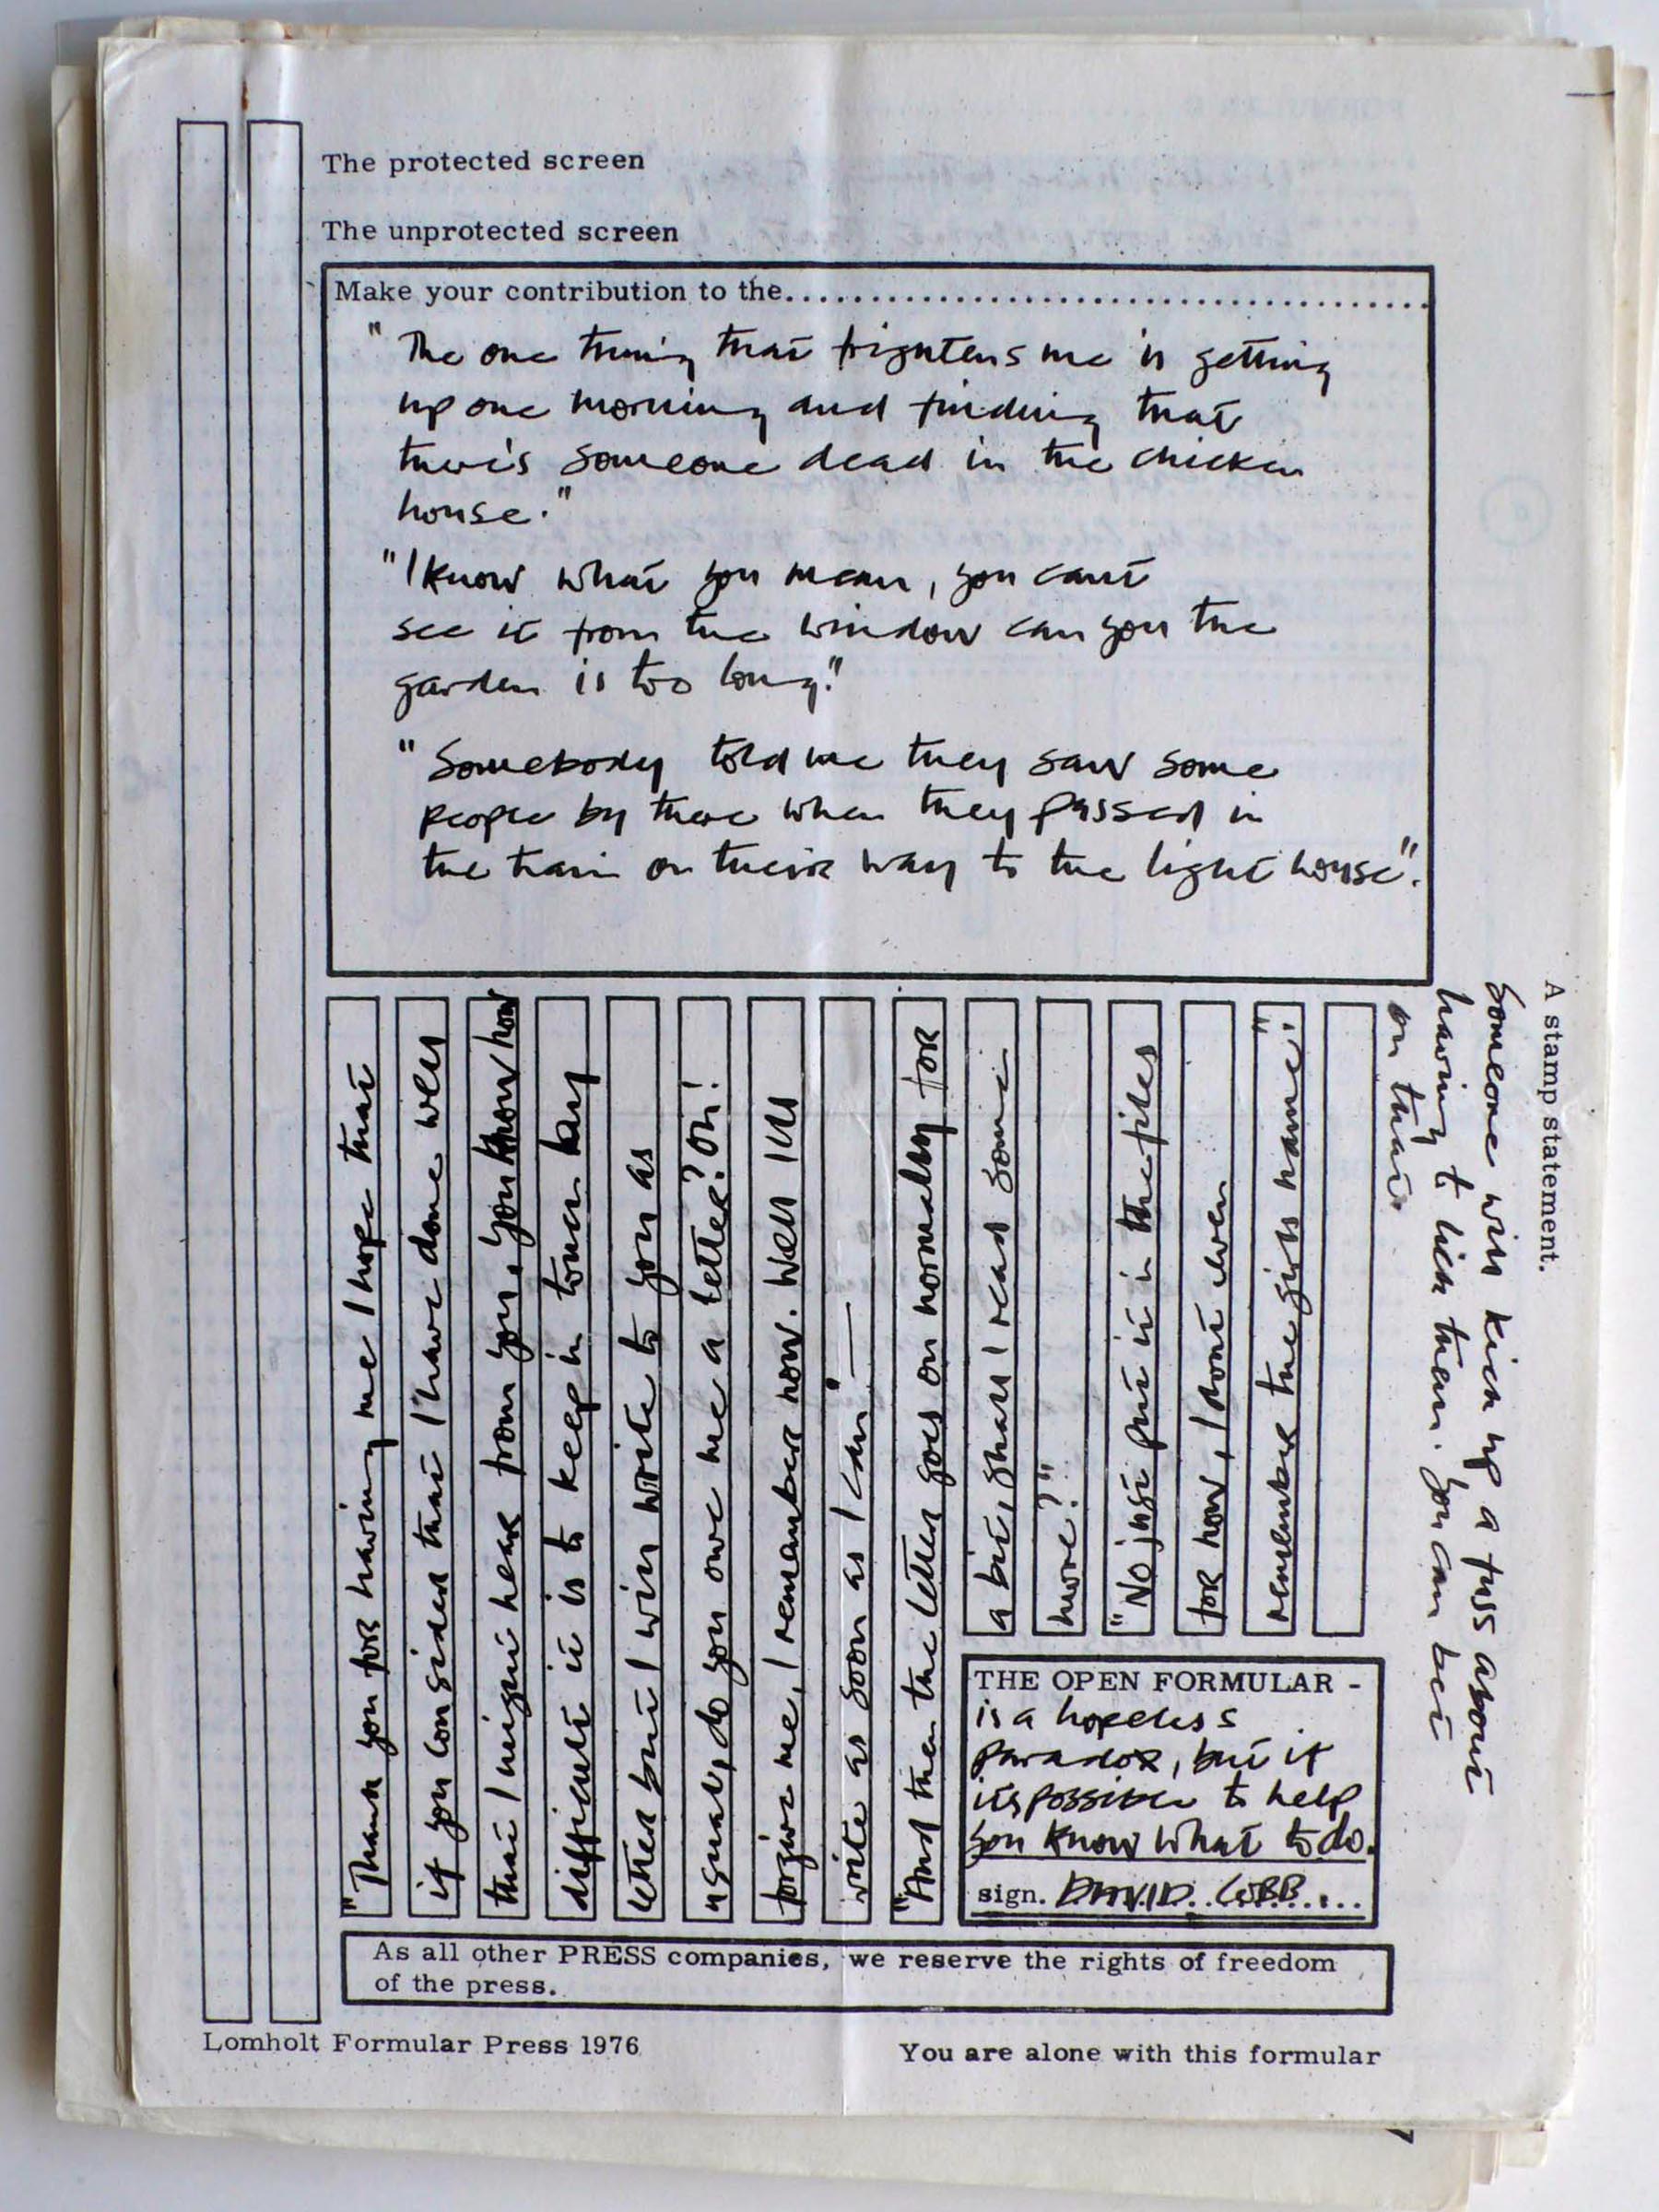 The protected screen
The unprotected screen
Make your contribution to the........................................
"The one thing that frightens me is getting
up one morning and finding that
there's someone dead in the chicken
house."
"I know what you mean, you cant
see it from the window can you the
garden is too long."
"Somebody told me they saw some
people by there when they passed in
the train on their way to the light house".
"Thank you for having me I hope that
if you considered that I have done well
that I might hear from you, you know how
difficult it is to keep in touch by
letter but I will write to you as
usual, do you owe me a letter? oh!
forgive me, I remember now. Well I'll
write as soon as I can"
"And then the letter goes on normally for
a bit, shall I read some
more?"
"No just put it in the files
for now, I dont even
remember the girls name".
A stamp statement.
Someone will kick up a fuss about
having to lick them. you can bet
on that.
THE OPEN FORMULAR -
is a hopeless
paradox, but if
its possible to help
you know what to do.
sign. DAVID..COBB....
As all other PRESS companies, we reserve the rights of freedom
of the press.
Lomholt Formular Press 1976
You are alone with this formular